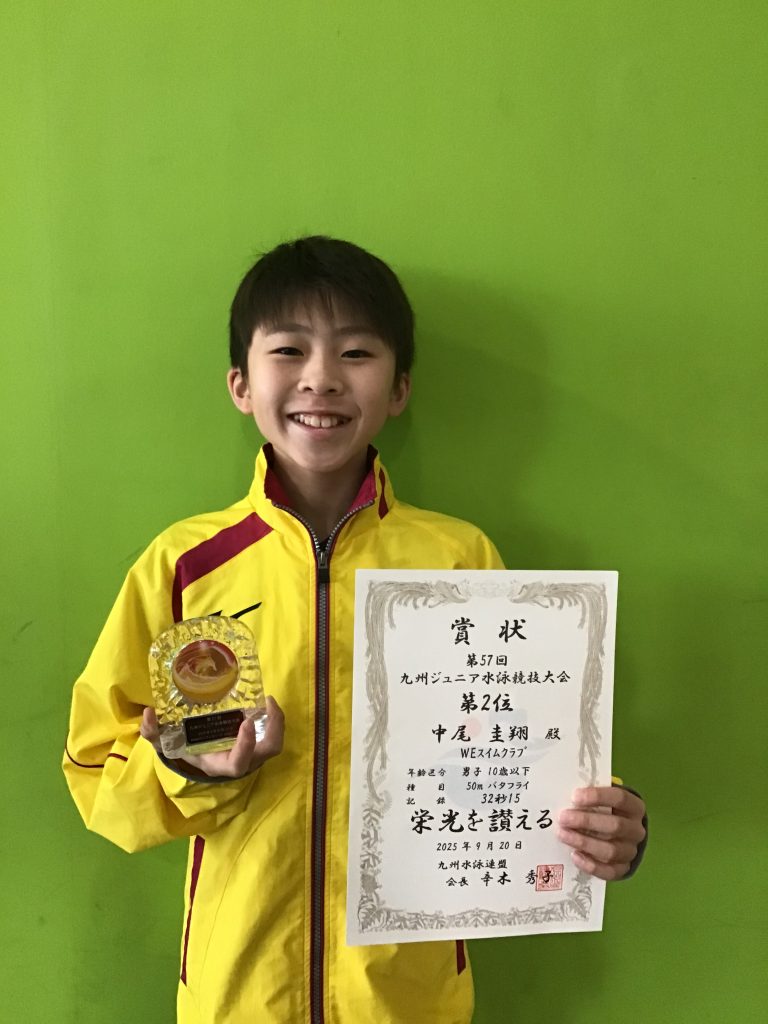 賞状
第57回
九州ジュニア水泳競技大会
第2位
中尾 圭翔 殿
WEスイムクラブ
年齢区分 男子 10歳以下
種目 50m バタフライ
記録 32秒15
栄光を讃える
2025年9月20日
九州水泳連盟
会長 辛木 秀子